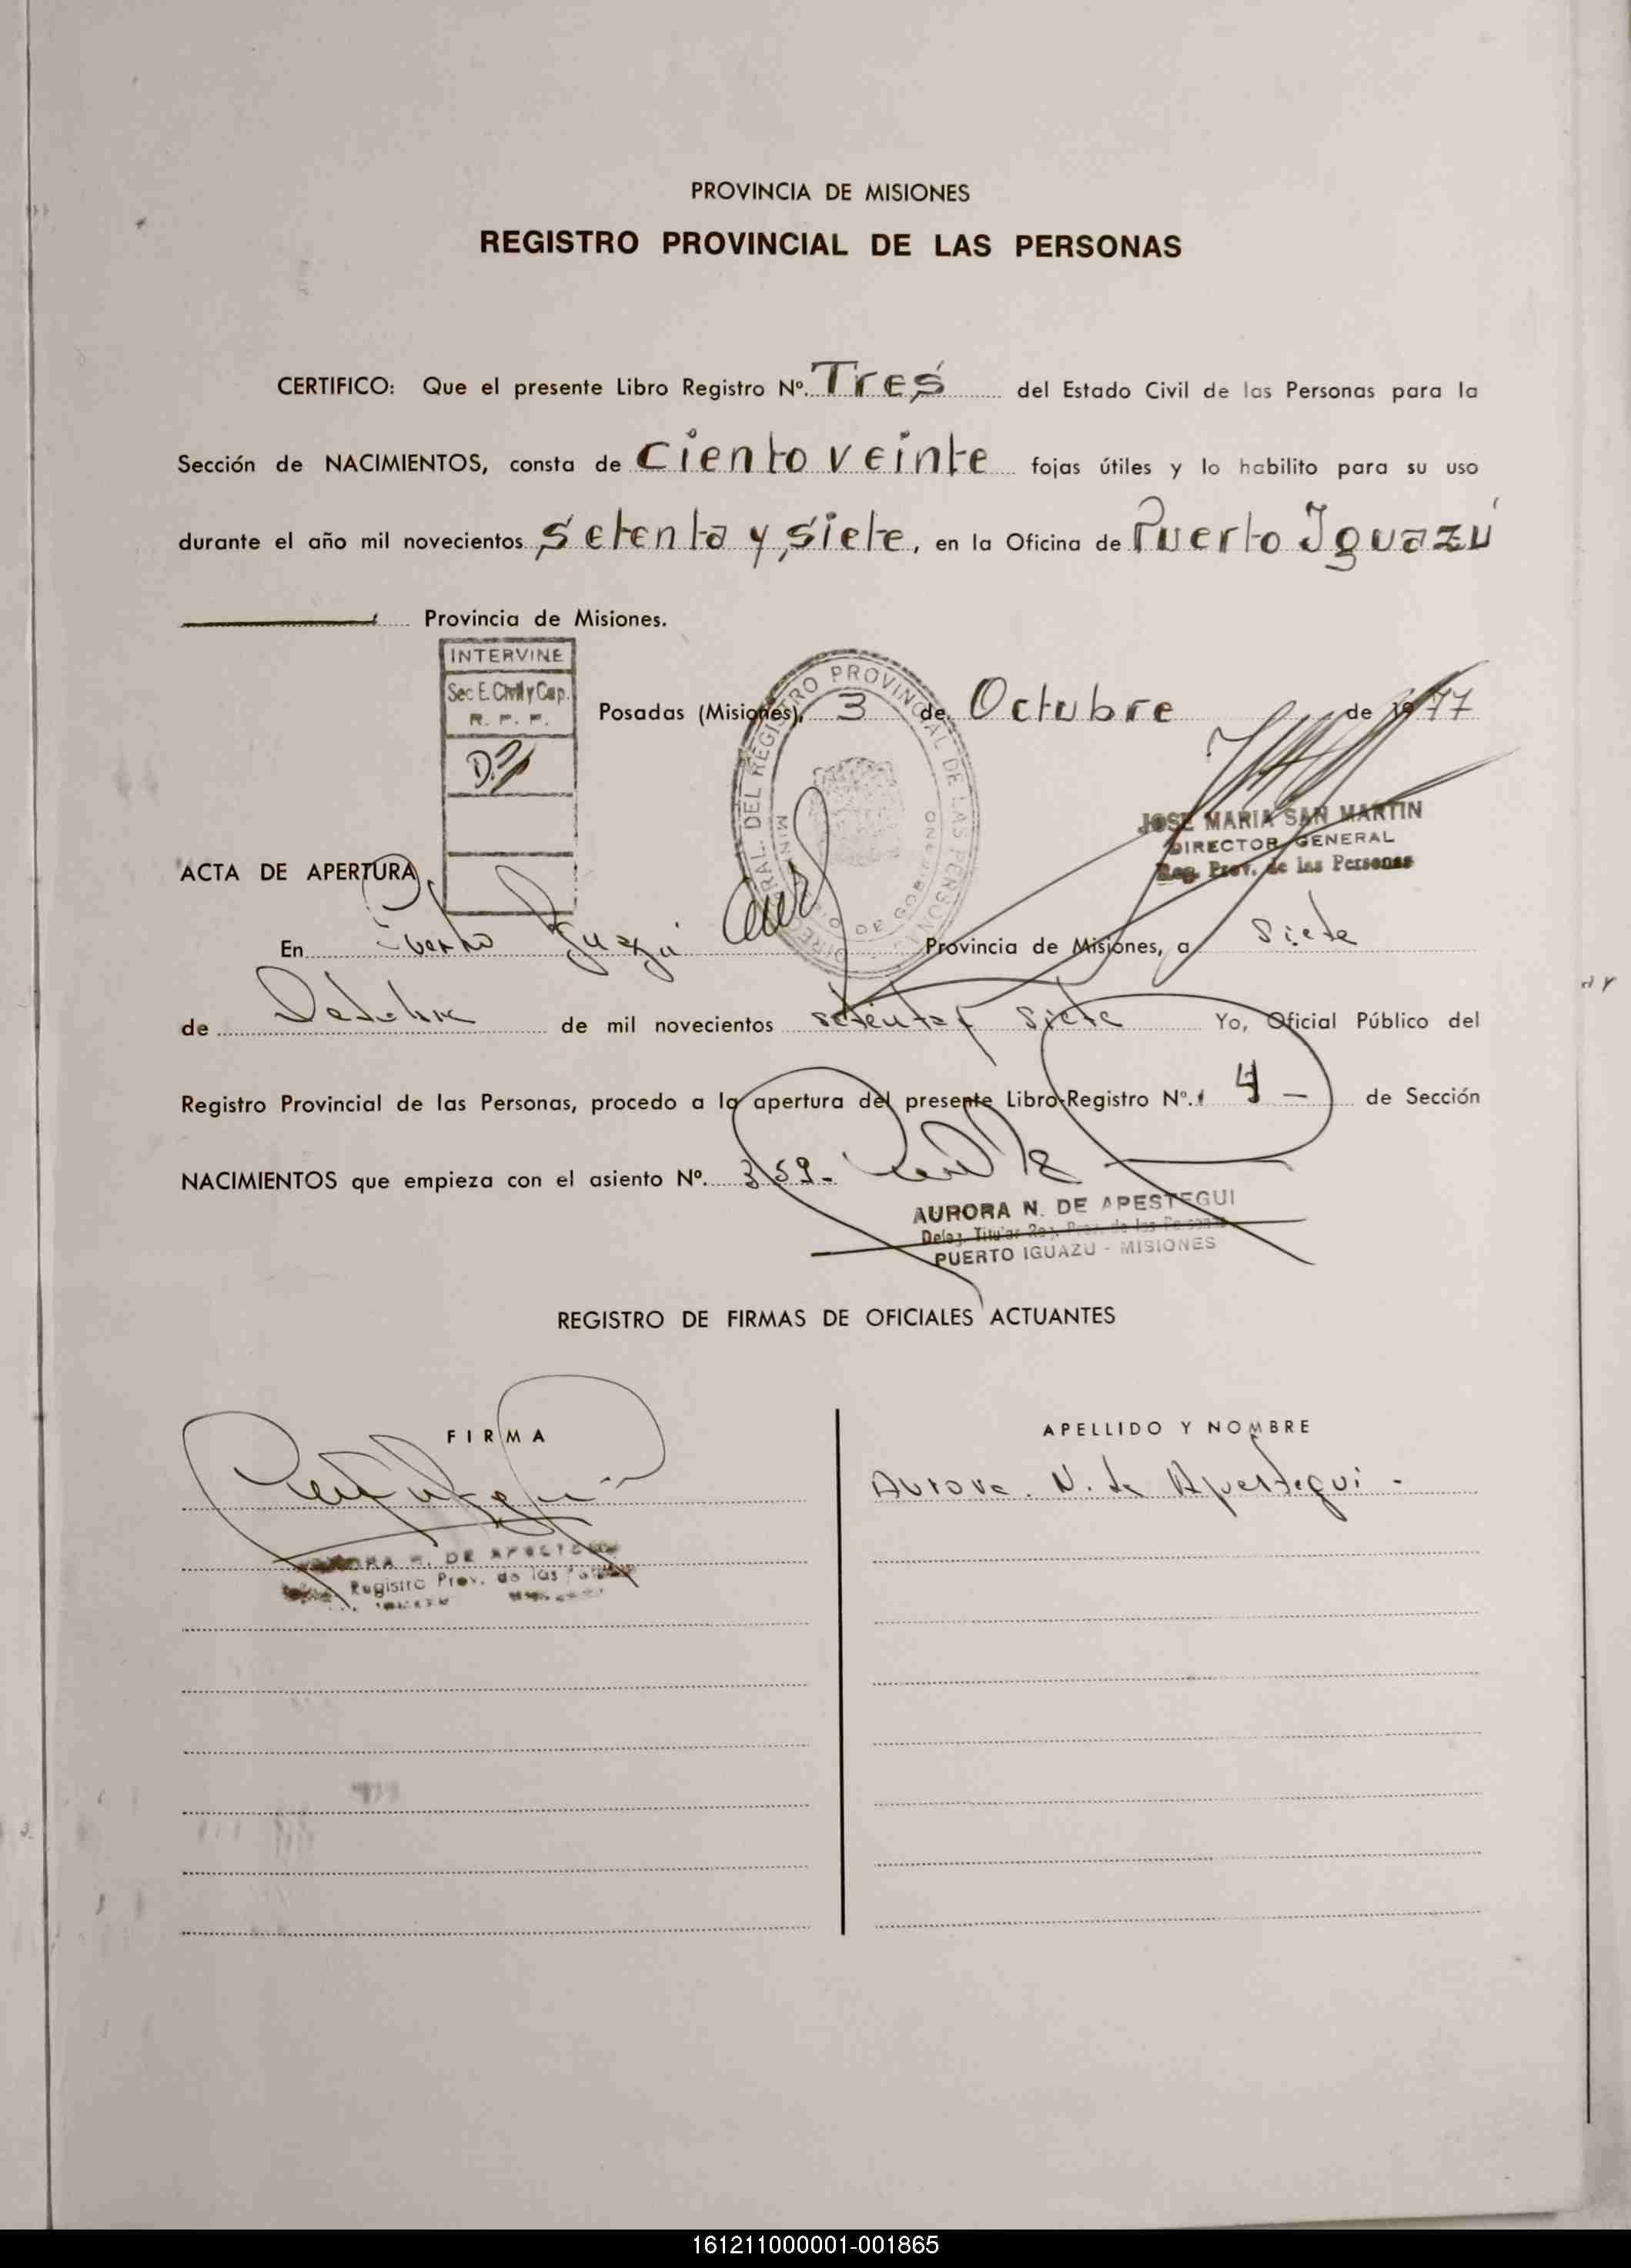 PROVINCIA DE MISIONES
REGISTRO PROVINCIAL DE LAS PERSONAS
CERTIFICO: Que el presente Libro Registro Nº. Tres del Estado Civil de las Personas para la
Sección de NACIMIENTOS, consta de Ciento veinte fojas útiles y lo habilito para su uso
durante el año mil novecientos Setenta y siete, en la Oficina de Puerto Iguazú
Provincia de Misiones.
INTERVINE
Sec E. Civil y Cap.
R. P. P.
Posadas (Misiones), 3 de Octubre de 1977
JOSE MARIA SAN MARTIN
DIRECTOR GENERAL
Reg. Prov. de las Personas
ACTA DE APERTURA
En Puerto Iguazú Provincia de Misiones, a Siete
de Octubre de mil novecientos setenta y siete Yo, Oficial Público del
Registro Provincial de las Personas, procedo a la apertura del presente Libro Registro Nº. 4 — de Sección
NACIMIENTOS que empieza con el asiento Nº. 359.-
AURORA N. DE APESTEGUI
Deleg. Titular Reg. Prov. de las Personas
PUERTO IGUAZU - MISIONES
REGISTRO DE FIRMAS DE OFICIALES ACTUANTES
FIRMA
APELLIDO Y NOMBRE
Aurora. N. de Apestegui -
Registro Prov. de las
161211000001-001865